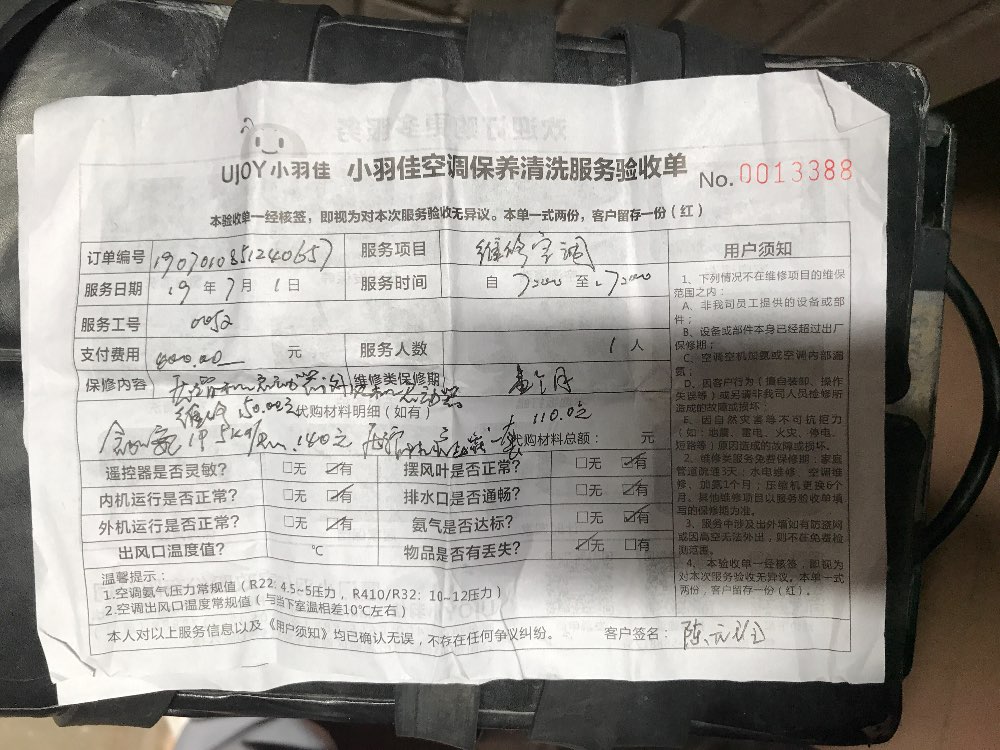 UJOY小羽佳 小羽佳空调保养清洗服务验收单 No. 0013388
本验收单一经核签，即视为对本次服务验收无异议。本单一式两份，客户留存一份（红）
订单编号 1907010851240657 服务项目 维修空调
服务日期 19 年 7 月 1 日 服务时间 自 至
服务工号 0052
支付费用 400.00 元 服务人数 1 人
保修内容 维修类保修期
维修 150.00元 代购材料明细（如有） 110.0元
140元 代购材料总额： 元
遥控器是否灵敏？ □无 ☑有 摆风叶是否正常？ □无 ☑有
内机运行是否正常？ □无 ☑有 排水口是否通畅？ □无 ☑有
外机运行是否正常？ □无 ☑有 氨气是否达标？ □无 ☑有
出风口温度值？ ℃ 物品是否有丢失？ ☑无 □有
温馨提示：
1.空调氨气压力常规值（R22: 4.5~5压力，R410/R32: 10~12压力）
2.空调出风口温度常规值（与当下室温相差10℃左右）
本人对以上服务信息以及《用户须知》均已确认无误，不存在任何争议纠纷。 客户签名：
用户须知
1、下列情况不在维修项目的维保
范围之内：
A、非我司员工提供的设备或部
件；
B、设备或部件本身已经超过出厂
保修期；
C、空调空机加氨或空调内部漏
氨；
D、因客户行为（擅自装卸、操作
失误等）或另请非我司人员检修所
造成的故障或损坏；
E、因自然灾害等不可抗拒力
（如：地震、雷电、火灾、停电、
短路等）原因造成的故障或损坏。
2、维修类服务免费保修期：家庭
管道疏通3天；水电维修、空调维
修、加氨1个月；压缩机更换6个
月。其他维修项目以服务验收单填
写的保修期为准。
3、服务中涉及出外墙如有防盗网
或因高空无法外出，则不在免费检
测范围。
4、本验收单一经核签，即视为
对本次服务验收无异议。本单一式
两份，客户留存一份（红）。